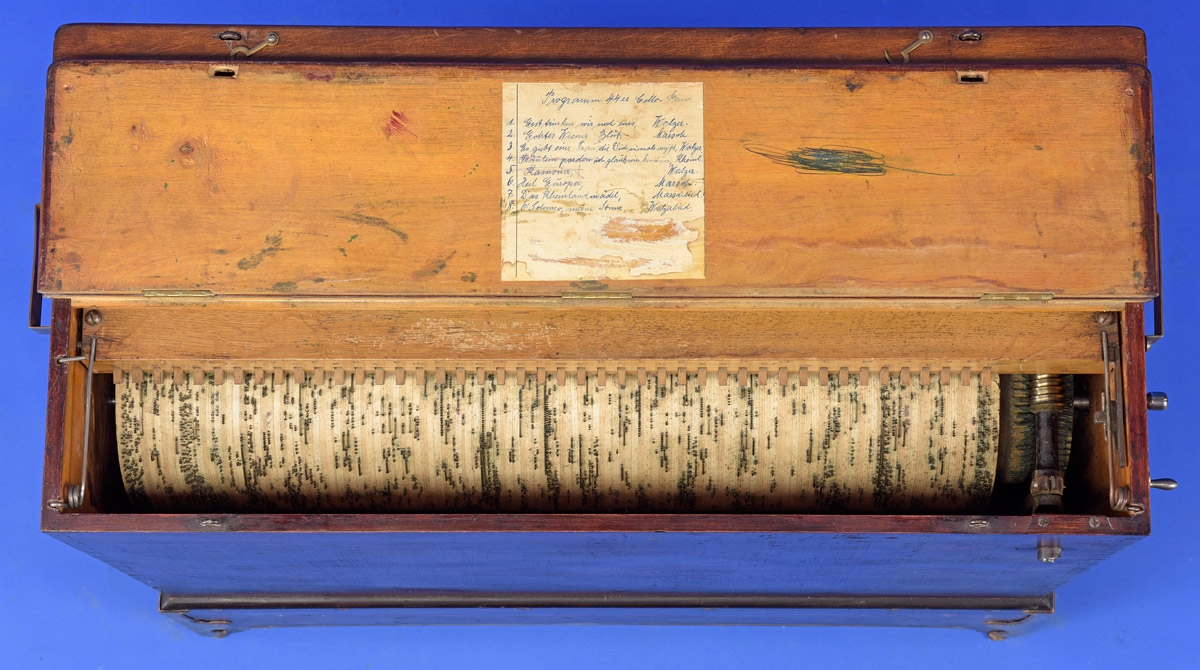 Programm 44er Cello
1. Erst trinken wir noch eins, Walzer.
2. Echtes Wiener Blut, Marsch
3. Es gibt eine Frau, die Dich niemals vergißt, Walzer
4. pardon ich Rheinl.
5. Ramona, Walzer.
6. Heil Europa, Marsch.
7. Das Rheinlandmädel, Marschlied.
8. O Solomio, meine Sonne, Walzerlied.